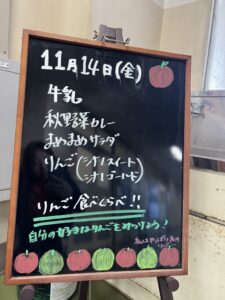 11月14日(金)
牛乳
秋野菜カレー
まめまめサラダ
りんご(シナノスイート
シナノゴールド)
りんご食べくらべ!!
自分の好きなりんごをみつけよう!